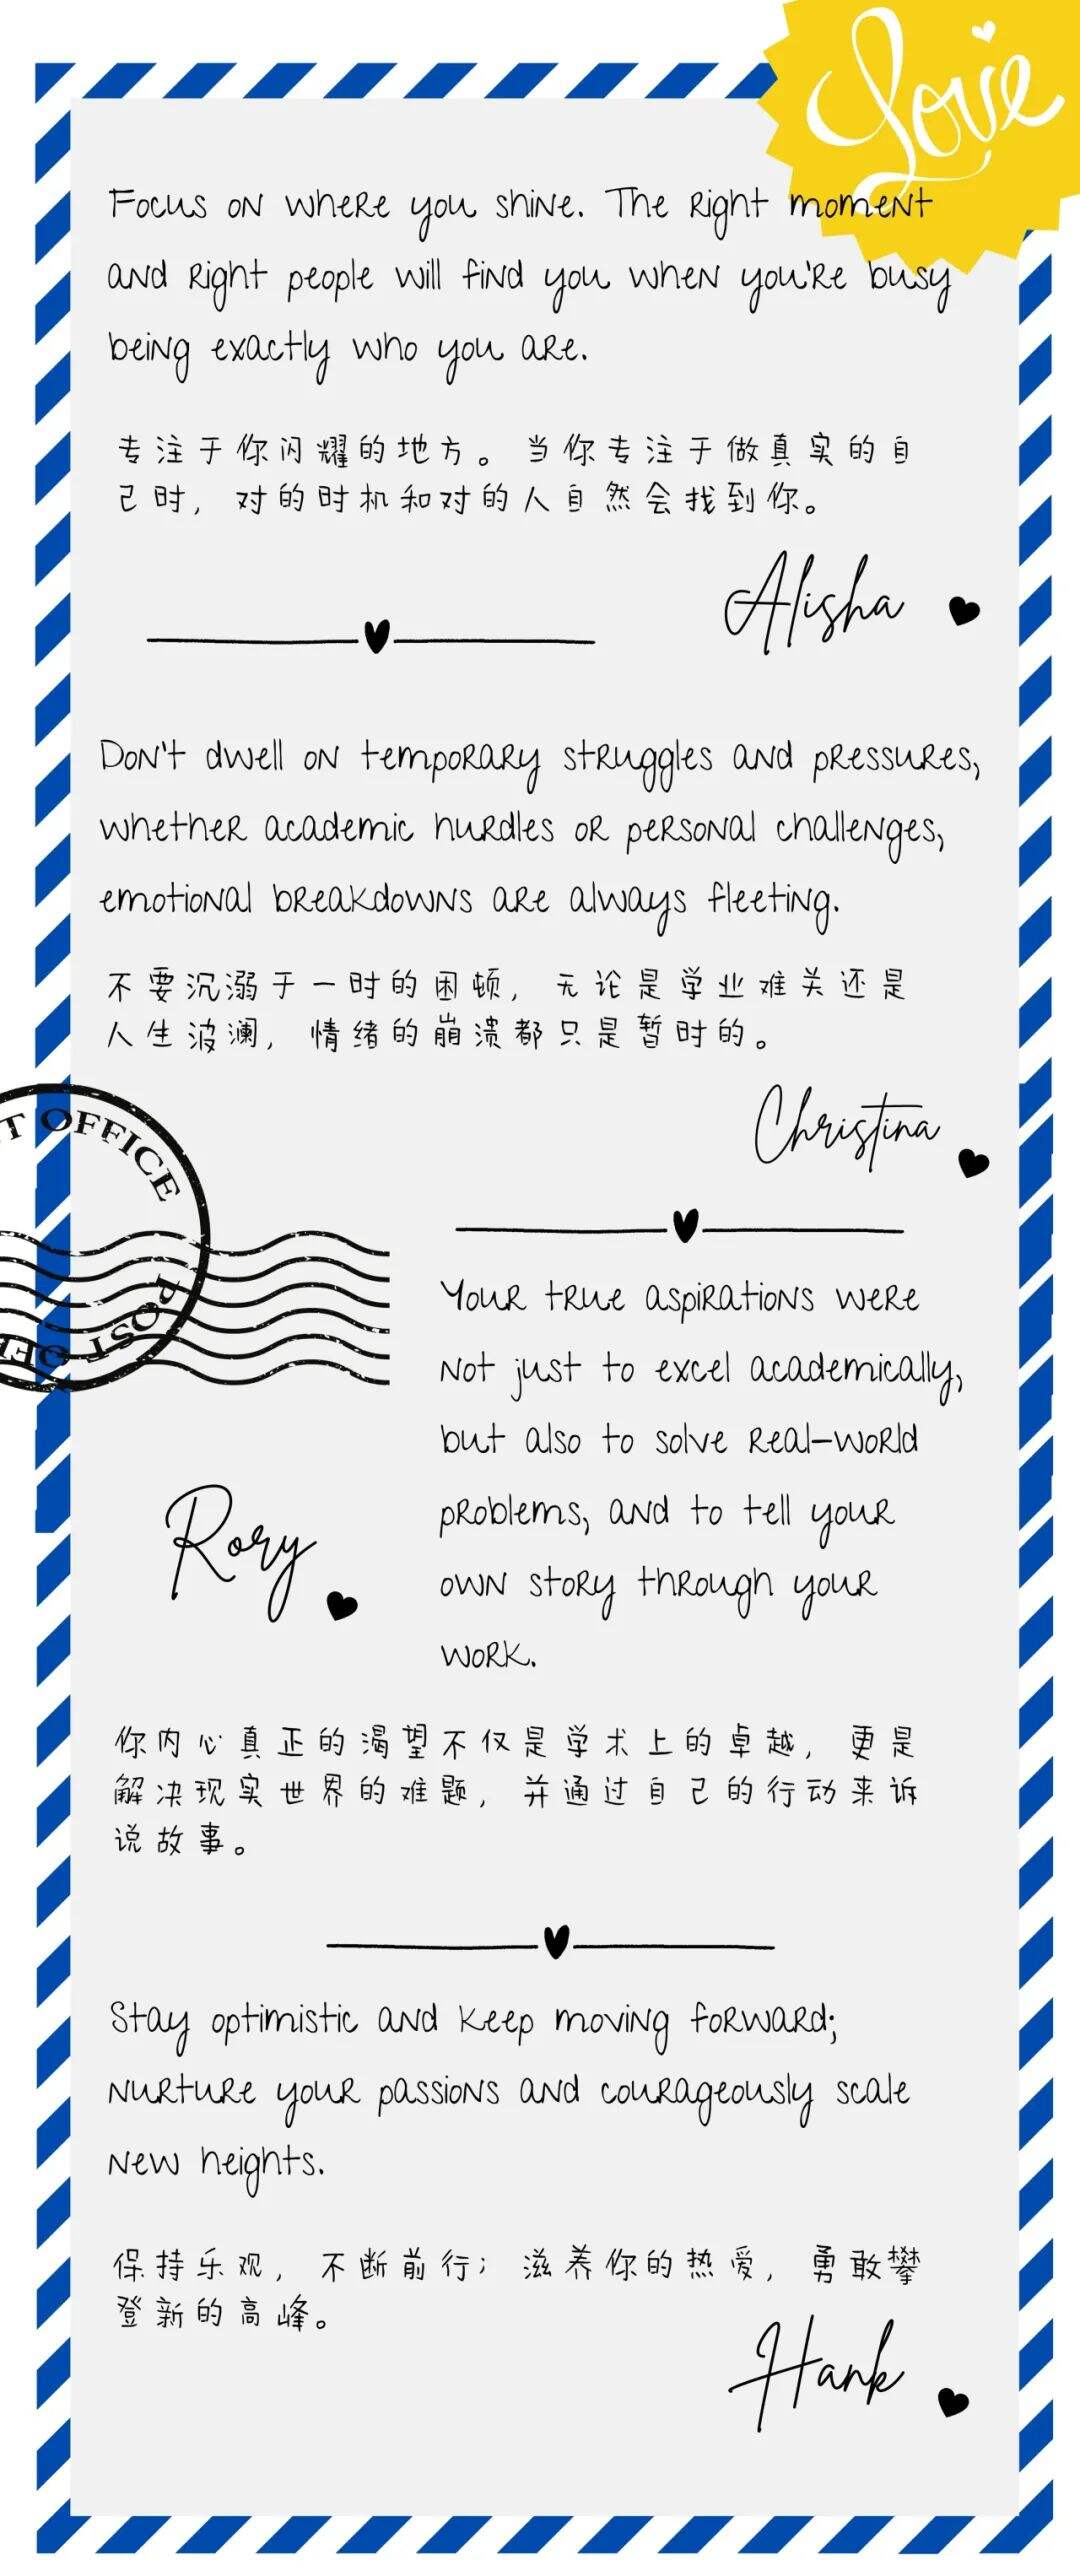 Love
Focus on where you shine. The right moment
and right people will find you when you're busy
being exactly who you are.
专注于你闪耀的地方。当你专注于做真实的自
己时，对的时机和对的人自然会找到你。
Alisha
Don't dwell on temporary struggles and pressures,
whether academic hurdles or personal challenges,
emotional breakdowns are always fleeting.
不要沉溺于一时的困顿，无论是学业难关还是
人生波澜，情绪的崩溃都只是暂时的。
Christina
T OFFICE
POST OFF
Your true aspirations were
not just to excel academically,
but also to solve real-world
problems, and to tell your
own story through your
work.
Rory
你内心真正的渴望不仅是学术上的卓越，更是
解决现实世界的难题，并通过自己的行动来诉
说故事。
Stay optimistic and keep moving forward;
nurture your passions and courageously scale
new heights.
保持乐观，不断前行；滋养你的热爱，勇敢攀
登新的高峰。
Hank